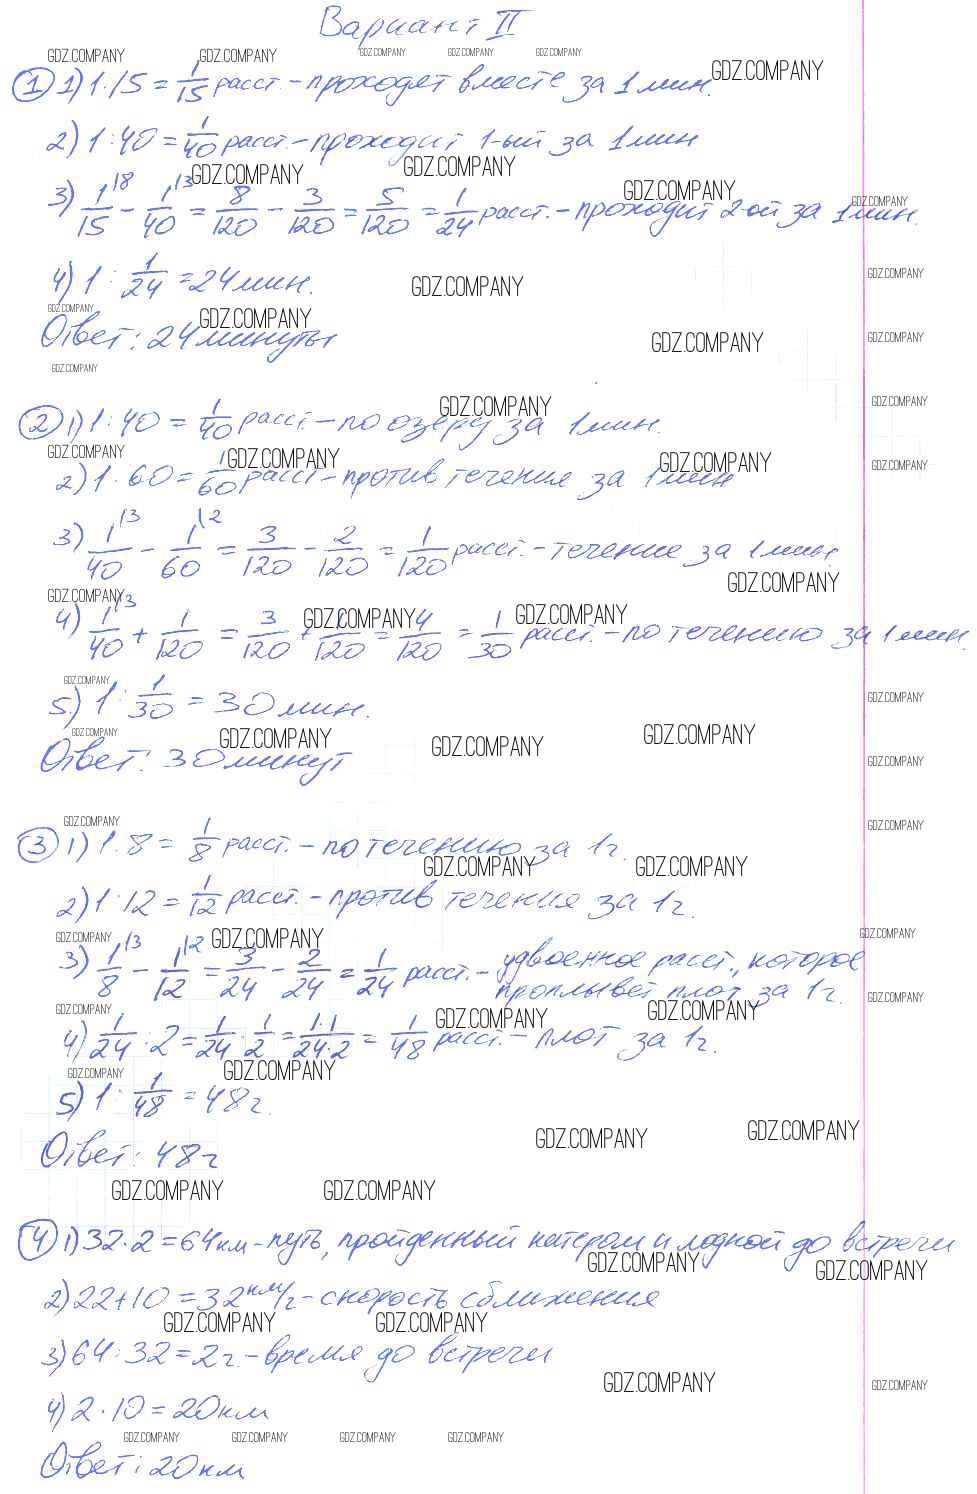 Вариант II
GDZ.COMPANY GDZ.COMPANY GDZ.COMPANY GDZ.COMPANY GDZ.COMPANY GDZ.COMPANY
① 1) 1:15 = 1/15 расст. – проходят вместе за 1 мин.
2) 1:40 = 1/40 расст. – проходит 1-ый за 1 мин
GDZ.COMPANY GDZ.COMPANY GDZ.COMPANY GDZ.COMPANY
3) 1/15 \8 – 1/40 \3 = 8/120 – 3/120 = 5/120 = 1/24 расст. – проходит 2-ой за 1 мин.
4) 1 : 1/24 = 24 мин.
GDZ.COMPANY GDZ.COMPANY
GDZ.COMPANY GDZ.COMPANY
Ответ: 24 минуты
GDZ.COMPANY GDZ.COMPANY
GDZ.COMPANY
GDZ.COMPANY GDZ.COMPANY
② 1) 1:40 = 1/40 расст. – по озеру за 1 мин.
GDZ.COMPANY GDZ.COMPANY GDZ.COMPANY GDZ.COMPANY
2) 1:60 = 1/60 расст – против течения за 1 мин
3) 1/40 \3 – 1/60 \2 = 3/120 – 2/120 = 1/120 расст. – течение за 1 мин.
GDZ.COMPANY GDZ.COMPANY
GDZ.COMPANY GDZ.COMPANY
4) 1/40 \3 + 1/120 = 3/120 + 1/120 = 4/120 = 1/30 расст. – по течению за 1 мин.
GDZ.COMPANY GDZ.COMPANY
5) 1 : 1/30 = 30 мин.
GDZ.COMPANY GDZ.COMPANY GDZ.COMPANY GDZ.COMPANY
Ответ: 30 минут
GDZ.COMPANY
GDZ.COMPANY GDZ.COMPANY
③ 1) 1:8 = 1/8 расст. – по течению за 1 ч.
GDZ.COMPANY GDZ.COMPANY
2) 1:12 = 1/12 расст. – против течения за 1 ч.
GDZ.COMPANY GDZ.COMPANY GDZ.COMPANY
3) 1/8 \3 – 1/12 \2 = 3/24 – 2/24 = 1/24 расст. – удвоенное расст., которое
проплывёт плот за 1 ч.
GDZ.COMPANY GDZ.COMPANY GDZ.COMPANY GDZ.COMPANY
4) 1/24 : 2 = 1/24 · 1/2 = 1·1/24·2 = 1/48 расст. – плот за 1 ч.
GDZ.COMPANY GDZ.COMPANY
5) 1 : 1/48 = 48 ч.
GDZ.COMPANY GDZ.COMPANY
Ответ: 48 ч
GDZ.COMPANY GDZ.COMPANY
④ 1) 32·2 = 64 км – путь, пройденный катером и лодкой до встречи
GDZ.COMPANY GDZ.COMPANY
2) 22+10 = 32 км/ч – скорость сближения
GDZ.COMPANY GDZ.COMPANY
3) 64:32 = 2 ч. – время до встречи
GDZ.COMPANY GDZ.COMPANY
4) 2·10 = 20 км
GDZ.COMPANY GDZ.COMPANY GDZ.COMPANY GDZ.COMPANY
Ответ: 20 км